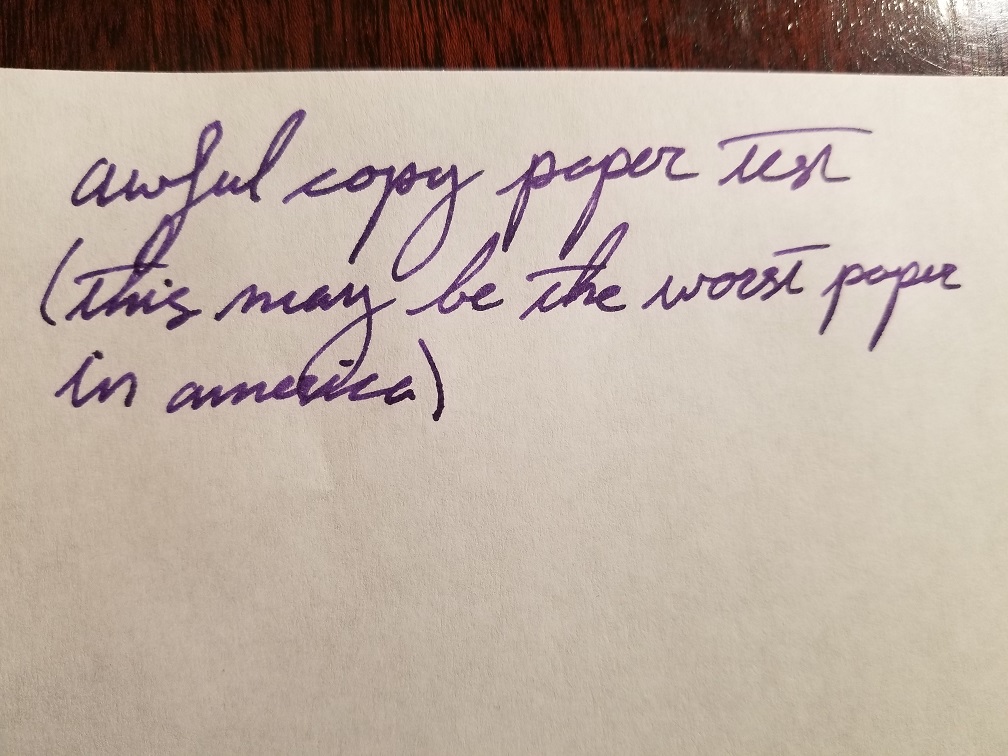 awful copy paper test
(this may be the worst paper
in america)